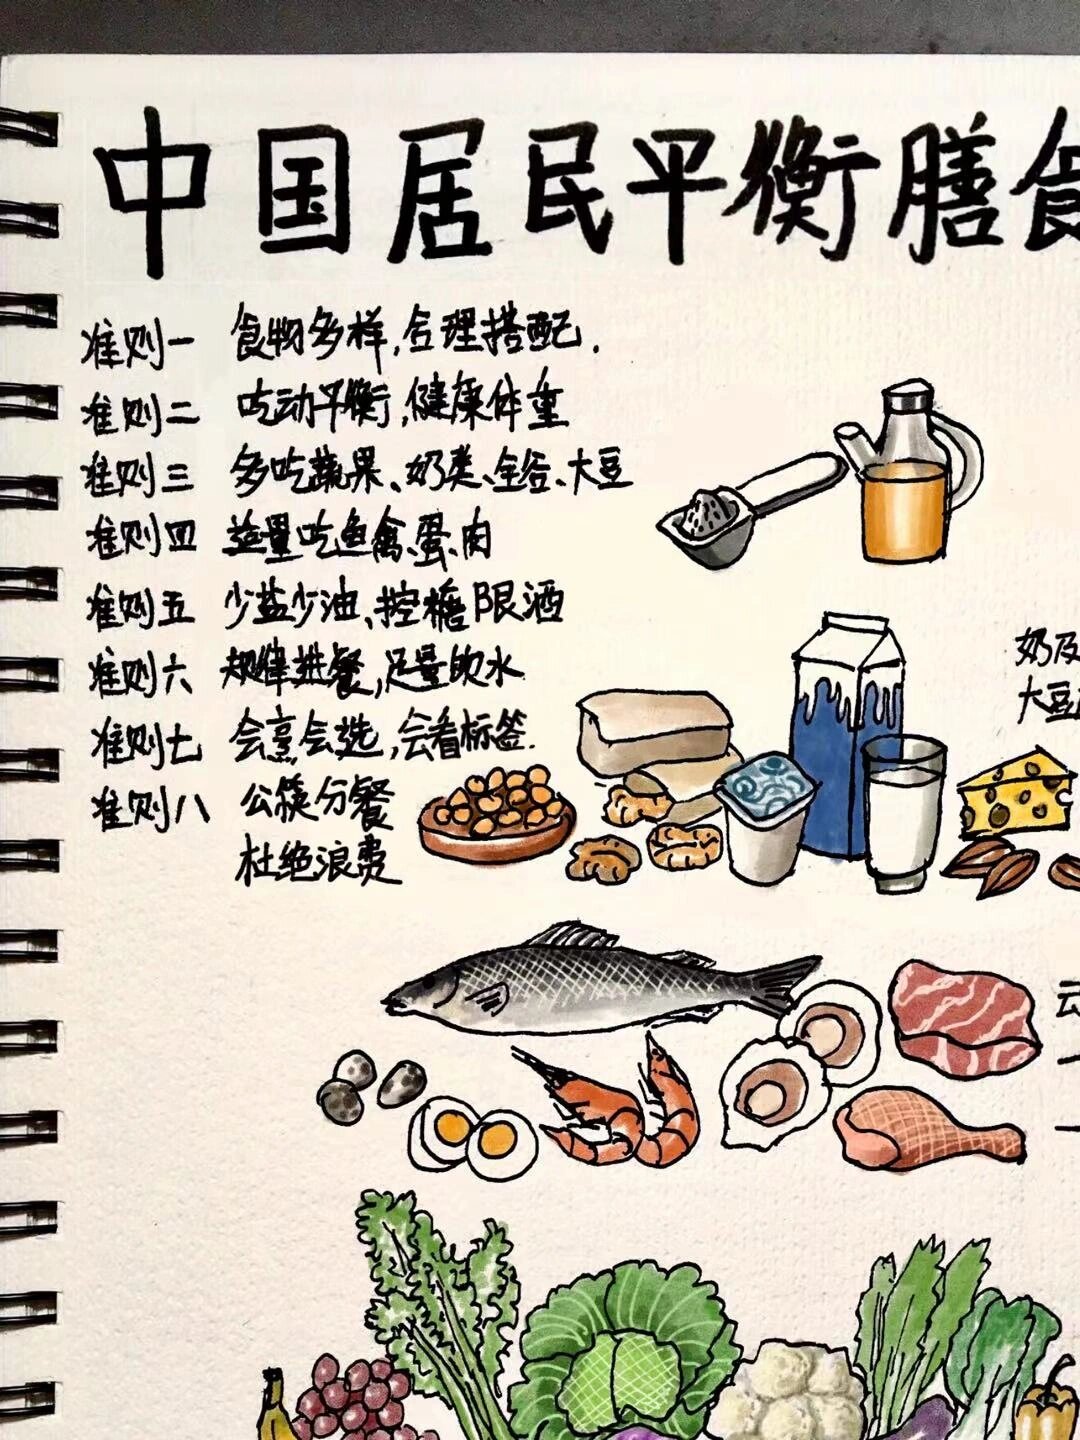 中国居民平衡膳食
准则一 食物多样,合理搭配.
准则二 吃动平衡,健康体重
准则三 多吃蔬果、奶类、全谷、大豆
准则四 适量吃鱼禽、蛋、肉
准则五 少盐少油、控糖限酒
准则六 规律进餐,足量饮水
准则七 会烹会选,会看标签.
准则八 公筷分餐
杜绝浪费
奶及
大豆
动